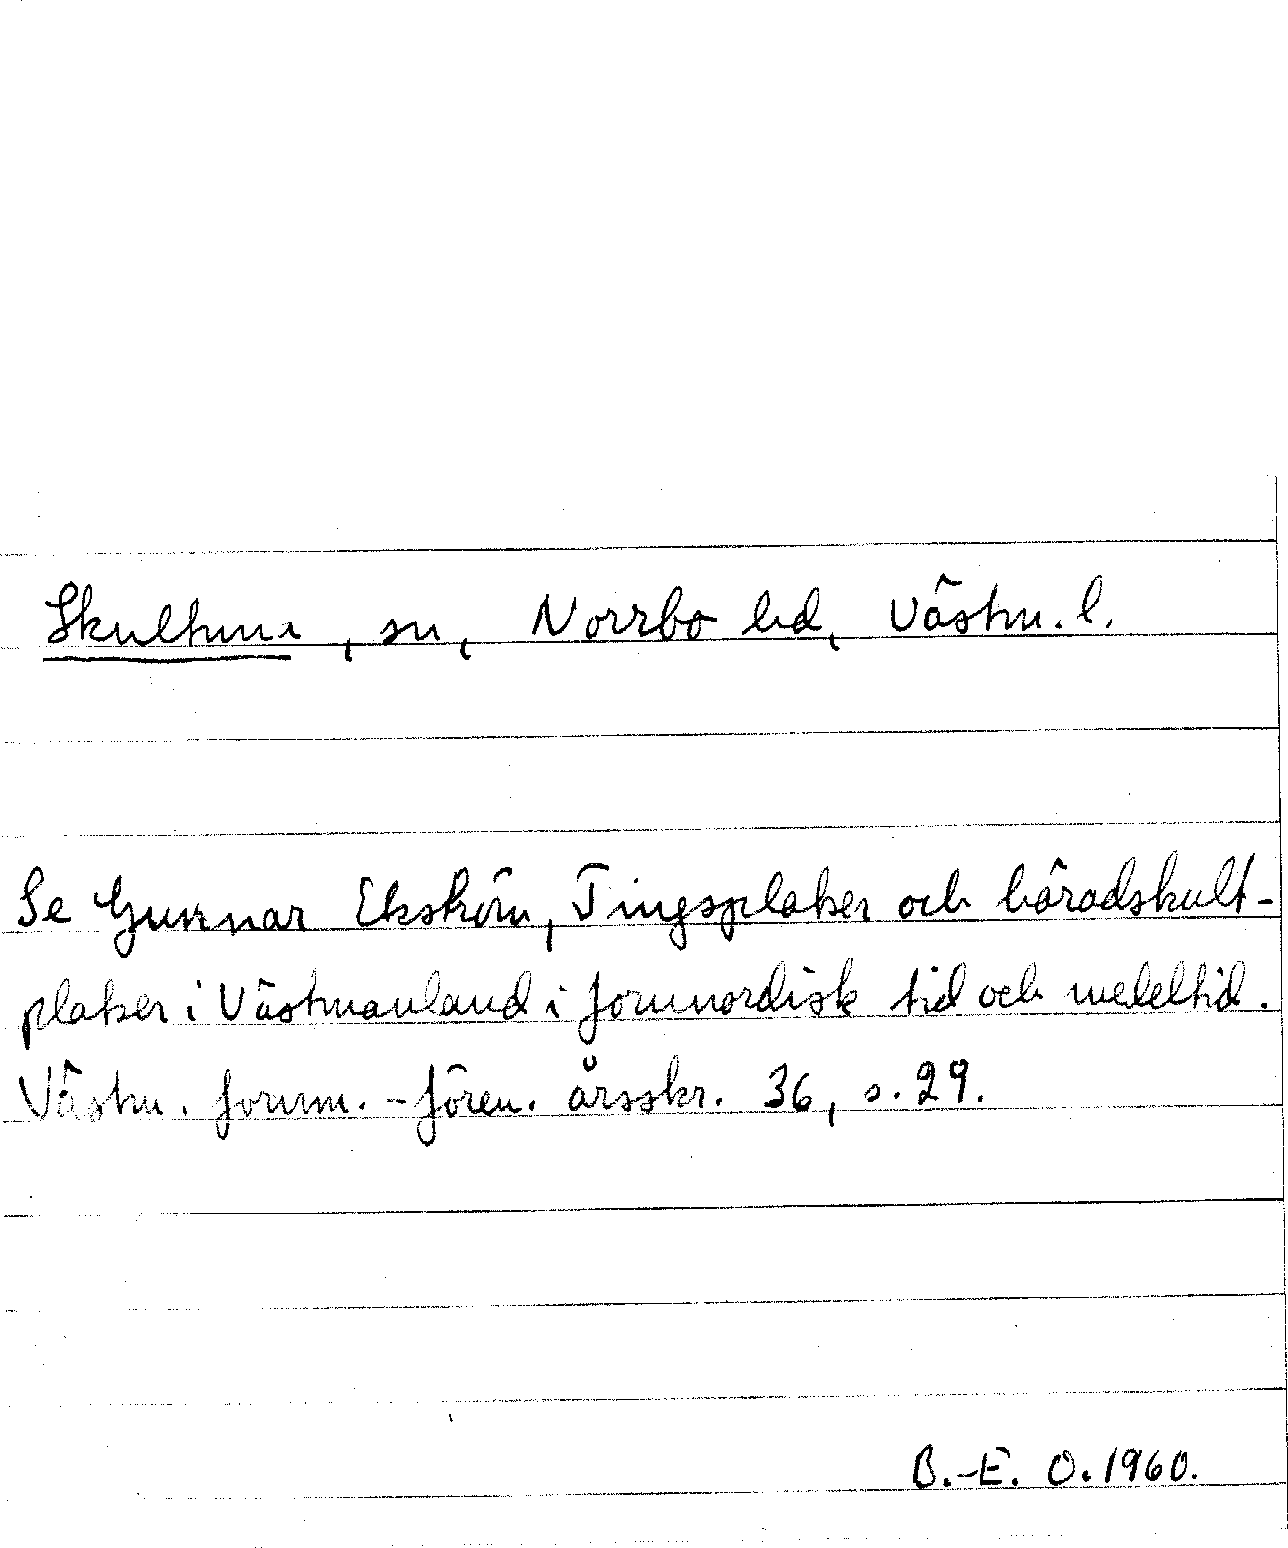 Skultuna, sn, Norrbo hd, Västm. l.
Se Gunnar Ekström, Tingsplatser och häradskult-
platser i Västmanland i fornnordisk tid och medeltid.
Västm. fornm.-fören. årsskr. 36, s. 29.
B.-E. O. 1960.